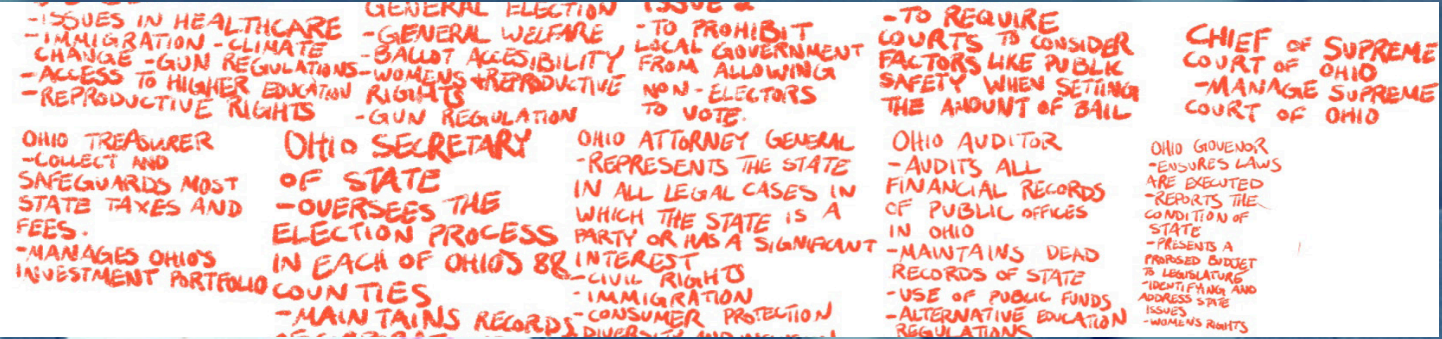 -ISSUES IN HEALTHCARE
-IMMIGRATION -CLIMATE
CHANGE -GUN REGULATIONS
-ACCESS TO HIGHER EDUCATION
-REPRODUCTIVE RIGHTS
GENERAL ELECTION
-GENERAL WELFARE
-BALLOT ACCESIBILITY
-WOMENS +REPRODUCTIVE
RIGHTS
-GUN REGULATION
ISSUE 2
-TO PROHIBIT
LOCAL GOVERNMENT
FROM ALLOWING
NON-ELECTORS
TO VOTE.
-TO REQUIRE
COURTS TO CONSIDER
FACTORS LIKE PUBLIC
SAFETY WHEN SETTING
THE AMOUNT OF BAIL
CHIEF OF SUPREME
COURT OF OHIO
-MANAGE SUPREME
COURT OF OHIO
OHIO TREASURER
-COLLECT AND
SAFEGUARDS MOST
STATE TAXES AND
FEES.
-MANAGES OHIO'S
INVESTMENT PORTFOLIO
OHIO SECRETARY
OF STATE
-OVERSEES THE
ELECTION PROCESS
IN EACH OF OHIO'S 88
COUNTIES
-MAINTAINS RECORDS
OHIO ATTORNEY GENERAL
-REPRESENTS THE STATE
IN ALL LEGAL CASES IN
WHICH THE STATE IS A
PARTY OR HAS A SIGNIFICANT
INTEREST
-CIVIL RIGHTS
-IMMIGRATION
-CONSUMER PROTECTION
DIVERSITY AND INCLUSION
OHIO AUDITOR
-AUDITS ALL
FINANCIAL RECORDS
OF PUBLIC OFFICES
IN OHIO
-MAINTAINS DEAD
RECORDS OF STATE
-USE OF PUBLIC FUNDS
-ALTERNATIVE EDUCATION
REGULATIONS
OHIO GOVENOR
-ENSURES LAWS
ARE EXECUTED
-REPORTS THE
CONDITION OF
STATE
-PRESENTS A
PROPOSED BUDJET
TO LEGISLATURE
-IDENTIFYING AND
ADDRESS STATE
ISSUES
-WOMENS RIGHTS